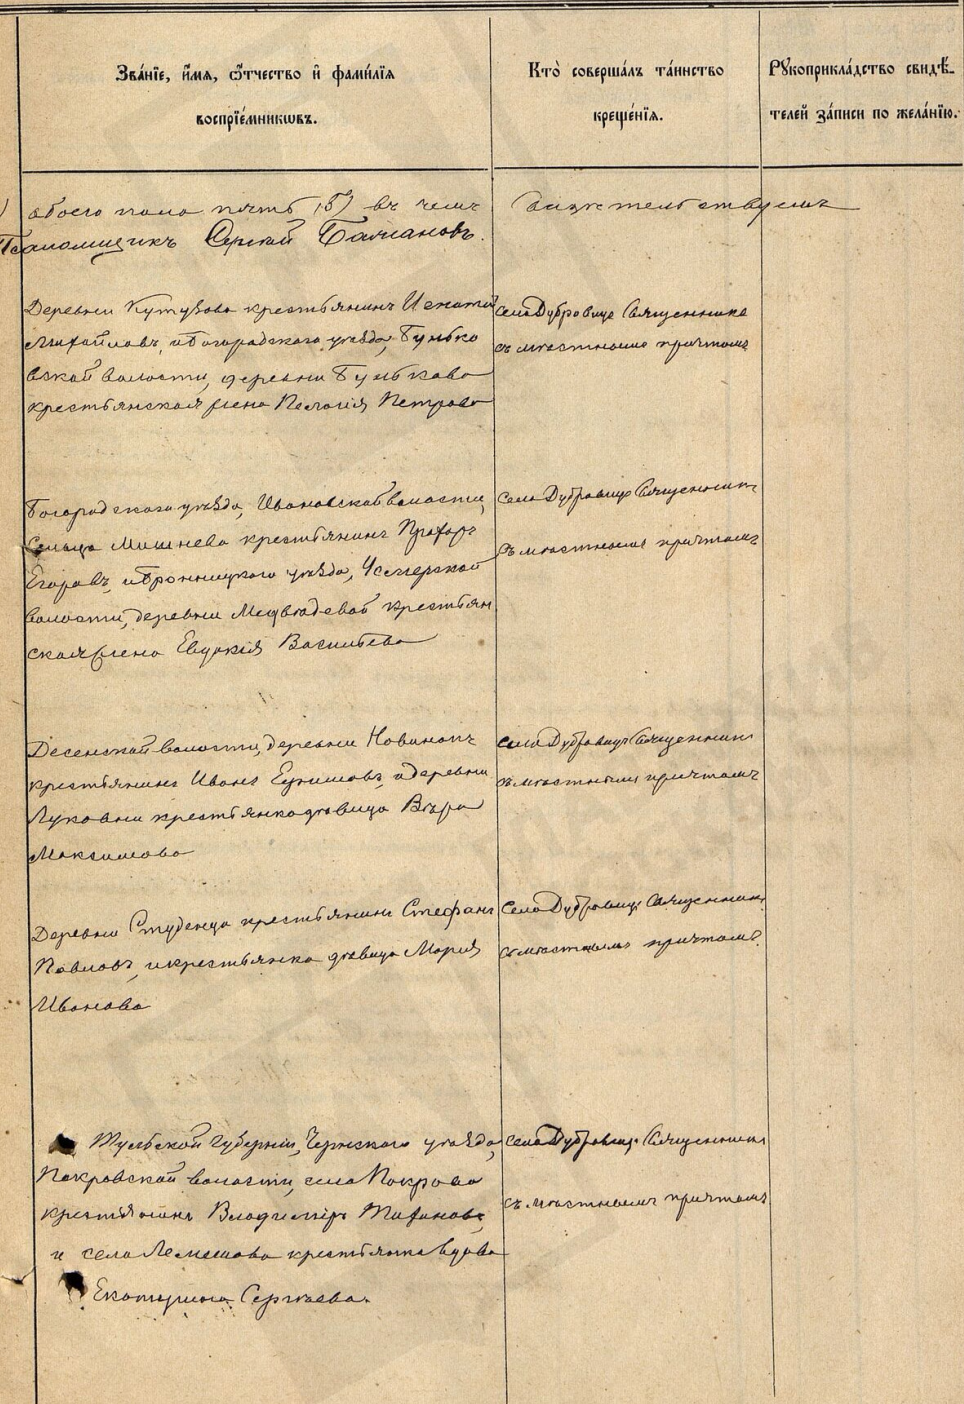 Зва́нїе, и҆́мя, ѻ҆́тчество и҆ фами́лїя
воспрїе́мникѡвъ.
Кто̀ соверша́лъ та́инство
креще́нїя.
Рꙋкоприкла́дство свидѣ́-
телей за́писи по жела́нїю.
обоего пола пять (5) въ чемъ свидѣтельствуемъ
Псаломщикъ Сергѣй
Деревни Кутузова крестьянинъ Игнатій
Михайловъ, и Богородскаго уѣзда, Буньков
ской волости, деревни Бунькова
крестьянская жена Пелагія Петрова
села Дубровицъ Священникъ
съ мѣстнымъ причтомъ
Богородскаго уѣзда, Ивановской волости,
Сельца Мишнева крестьянинъ
Егоровъ, и Бронницкаго уѣзда, Усмерской
волости, деревни Медвѣдевой крестьян
ская жена Евдокія Васильева
Села Дубровицъ Священникъ
съ мѣстнымъ причтомъ
Десенской волости, деревни Новинокъ
крестьянинъ Иванъ Ефимовъ, и деревни
Луковни крестьянка дѣвица Вѣра
Максимова
села Дубровицъ Священникъ
съ мѣстнымъ причтомъ
Деревни Студенца крестьянинъ Стефанъ
Павловъ, и крестьянка дѣвица Марія
Иванова
Села Дубровицъ Священникъ
съ мѣстнымъ причтомъ.
Тульской губерніи, Чернскаго уѣзда,
Покровской волости, села Покрова
крестьянинъ Владиміръ
и села Лемешова крестьянка вдова
Екатерина Сергѣева.
села Дубровицъ Священникъ
съ мѣстнымъ причтомъ